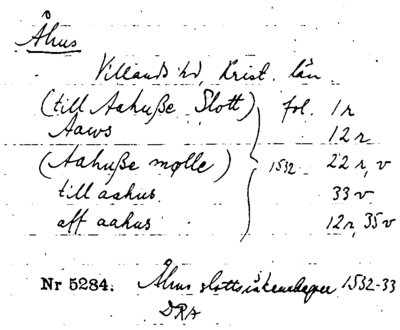 Åhus
Villands hd, Krist. län
(till Aahuße Slott) fol. 1 r
Aaws 12 r
(Aahuße mølle) 1532 22 r, v
till aahus 33 v
aff aahus 12 r, 35 v
Nr 5284. Åhus slottsräkenskaper 1532-33
DRA